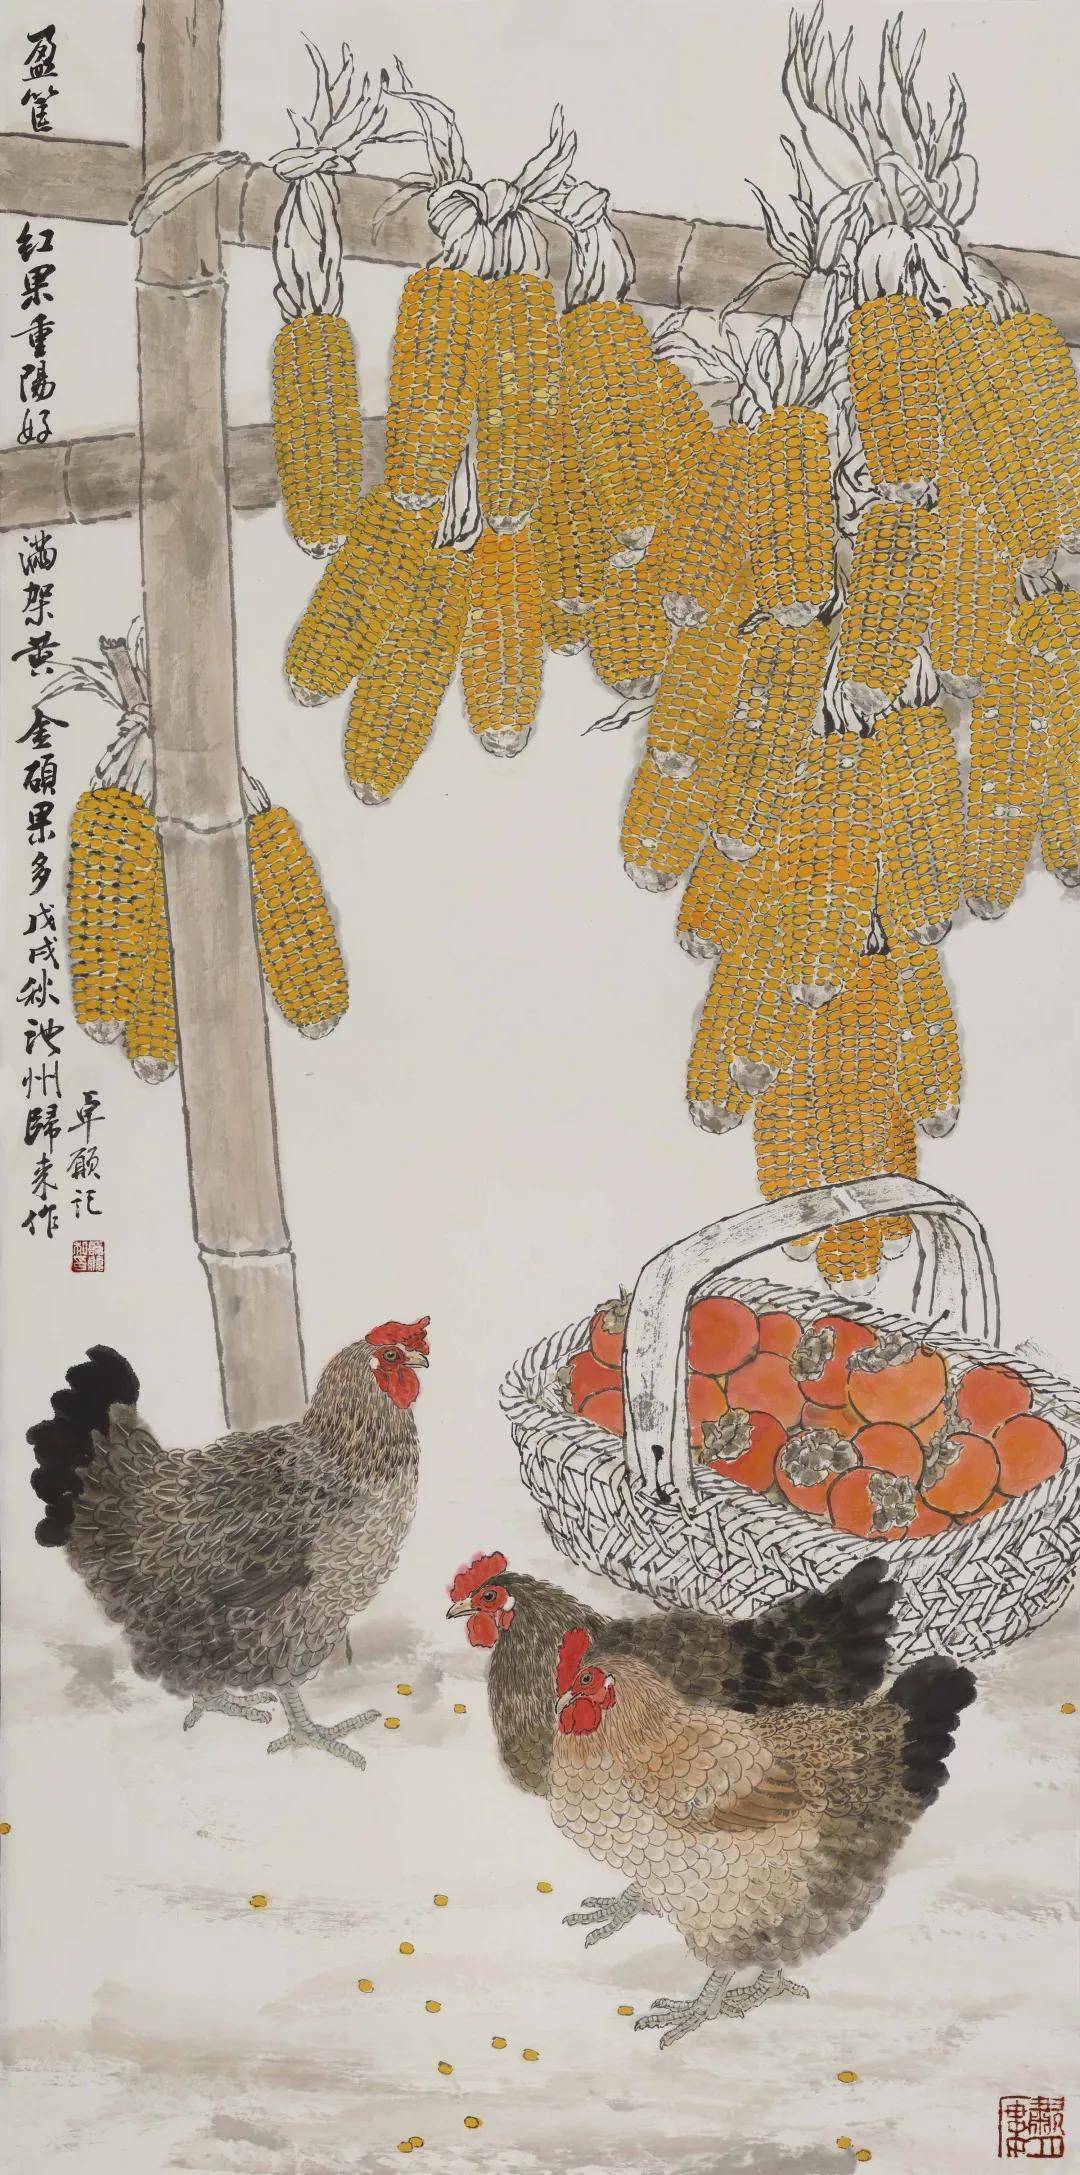 盈筐
红果重陽好
满架黄金碩果多戊戌秋池州歸来作
卓願记